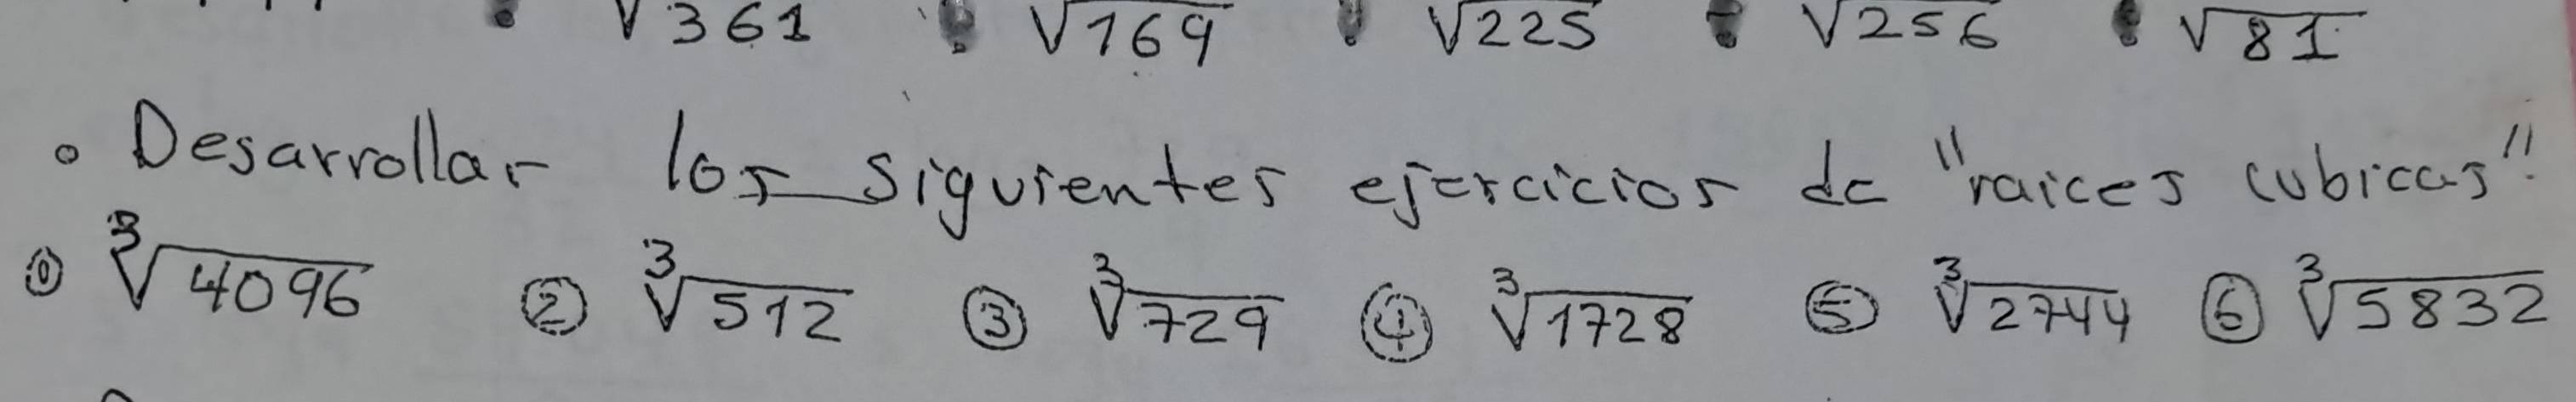 • √361 • √169 • √225 • √256 • √81
• Desarrollar los siguientes ejercicios de "raices cubicas":
① ∛4096 ② ∛512 ③ ∛729 ④ ∛1728 ⑤ ∛2744 ⑥ ∛5832